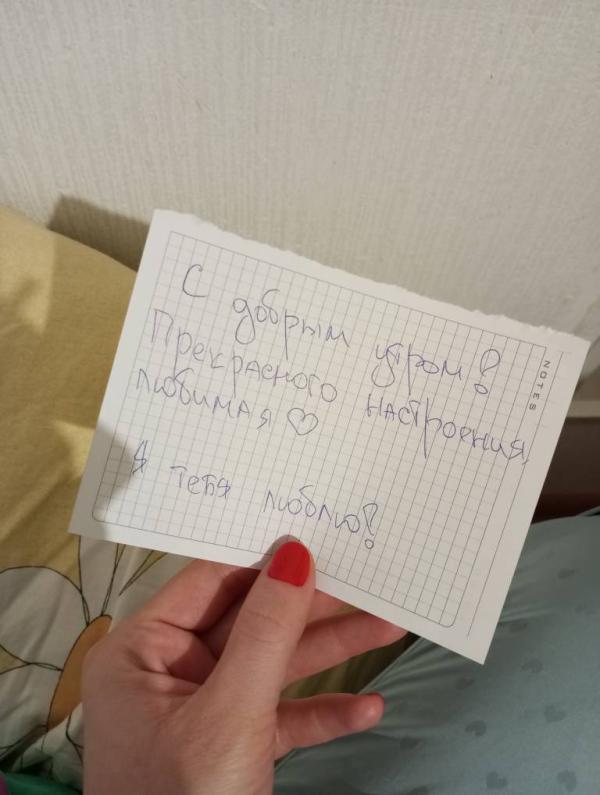 С добрым утром!
Прекрасного настроения,
любимая ♡
Я тебя люблю!
NOTES